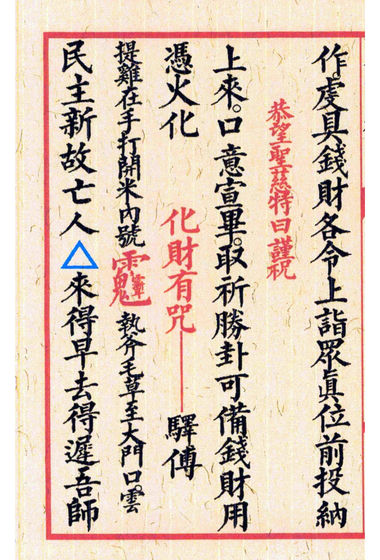 作虔具錢財各令上詣眾眞位前投納
恭望聖慈特日謹祝
上來。口意宣畢。取祈勝卦可備錢財用
憑火化 化財有咒——驛傅
提雞在手打開米內號 執斧毛草至大門口。雲
民主新故亡人△來得早去得遲吾師